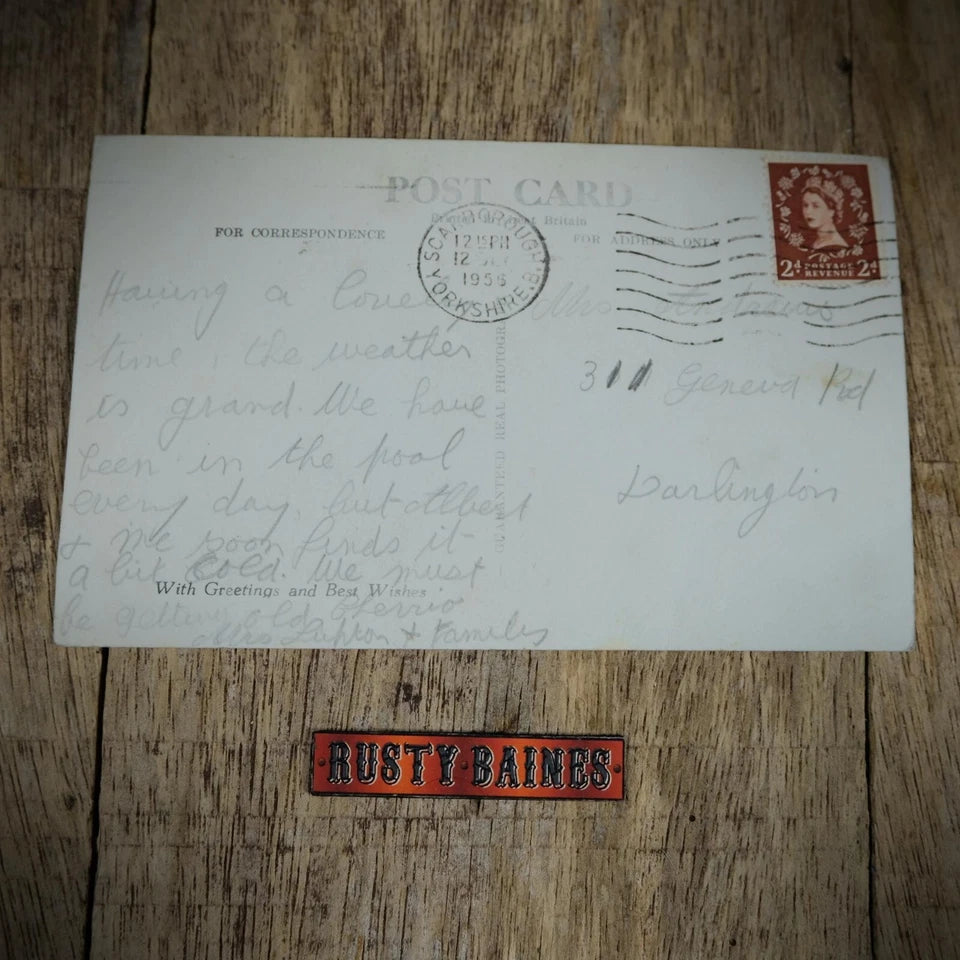 POST CARD
Printed in Great Britain
FOR CORRESPONDENCE
FOR ADDRESS ONLY
SCARBOROUGH
12 15 PM
12
1956
YORKSHIRE. B.
2d POSTAGE REVENUE 2d
Having a lovely
time, the weather
is grand. We have
been in the pool
every day, but Albert
& me soon finds it
a bit cold. We must
be getting old Cherrio
Mrs & Families
With Greetings and Best Wishes
GUARANTEED REAL PHOTOGRAPH
Mrs
311 Geneva Rd
Darlington
RUSTY BAINES